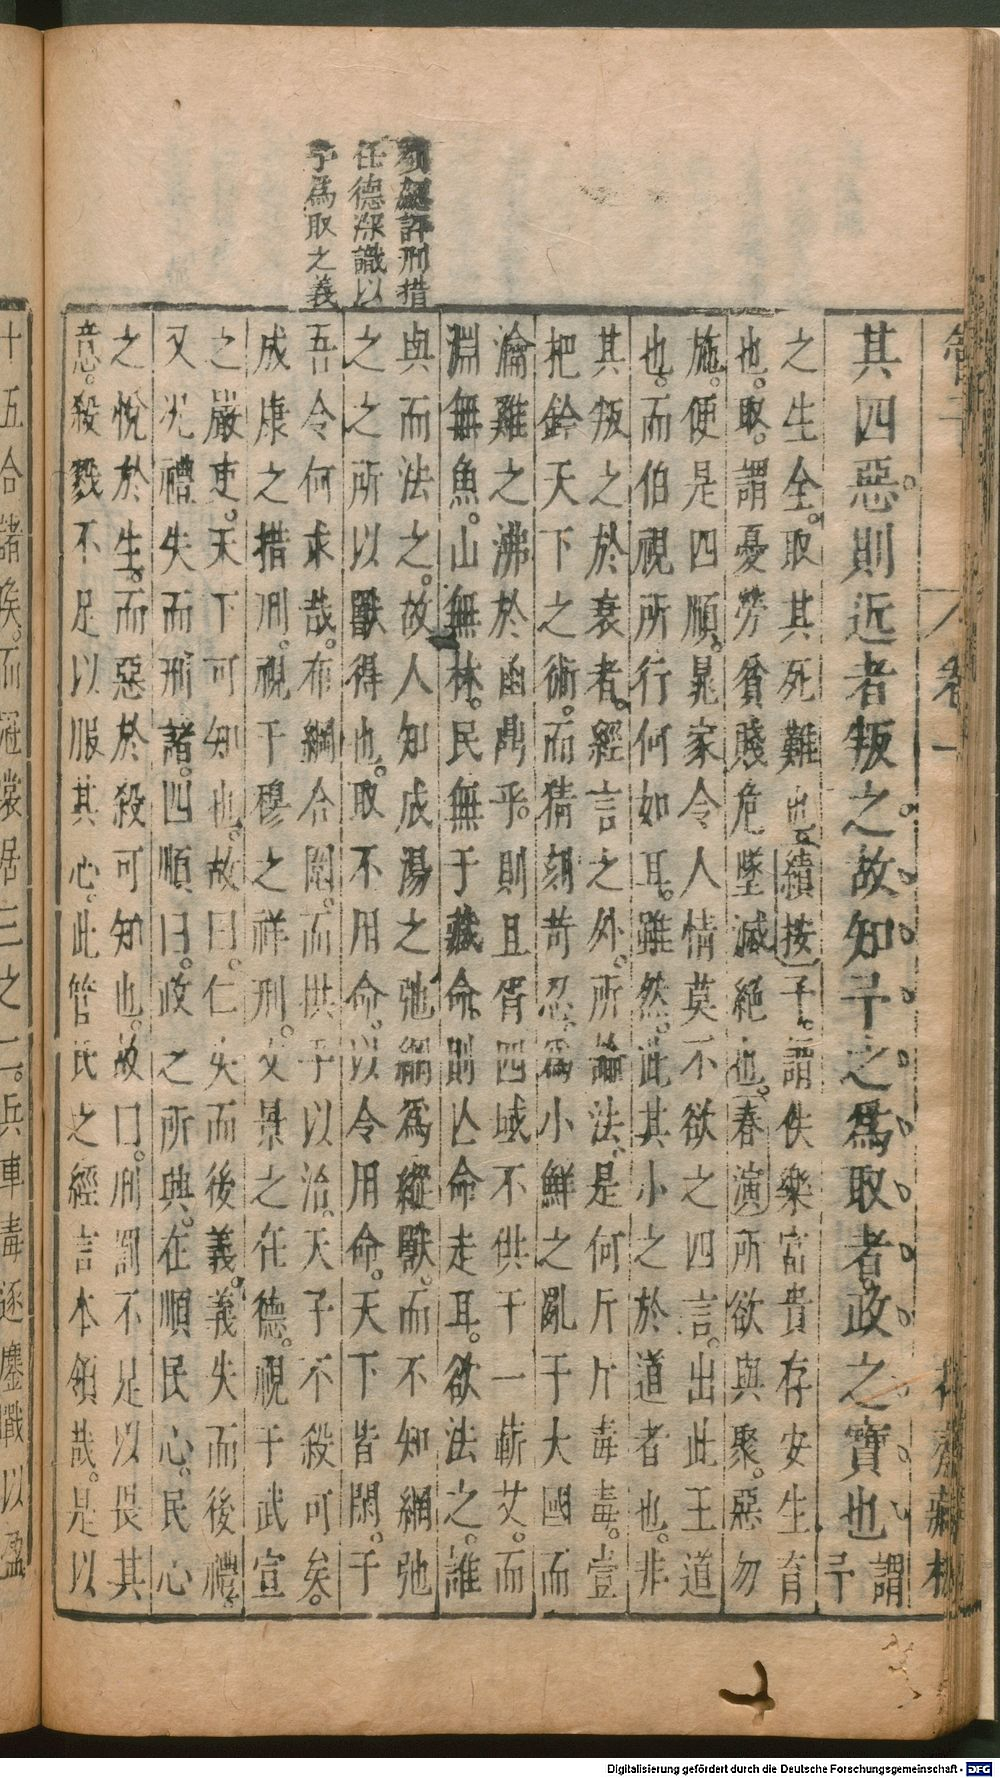 管子
卷一
花齋藏板
評刑措
任德深識以
予爲取之義
其四惡。則近者叛之。故知予之爲取者。政之寶也
謂
予
之生全。取其死難也續按予。謂佚樂富貴存安生育
也。取。謂憂勞貧賤危墜滅絕也。春演所欲與聚。惡勿
施。便是四順。鼂家令人情莫不欲之四言。出此王道
也。而伯視所行何如耳。雖然。此其小之於道者也。非
其叛之於衰者。經言之外。所論法。是何斤斤毒毒。壹
把鈴天下之術。而猜刻苛忍。爲小鮮之亂于大國而
瀹雞之沸於函鼎乎。則且胥四域不供于一蘄艾。而
淵無魚。山無林。民無于藏命。則亾命走耳。欲法之。誰
與而法之。故人知成湯之弛網爲縱獸。而不知網弛
之之所以獸得也。取不用命。以令用命。天下皆閑。于
吾令何求哉。布綱合圍。而拱乎以治。天子不殺可矣。
成康之措刑。視于穆之祥刑。文景之任德。視于武宣
之嚴吏。天下可知也。故曰。仁失而後義。義失而後禮。
又况禮失而刑諸。四順曰。政之所興。在順民心。民心
之悅於生。而惡於殺可知也。故曰。刑罰不足以畏其
意。殺戮不足以服其心。此管氏之經言本領哉。是以
十五合諸侯。而冠裳居三之二。兵車毒逐鏖戰以盈
Digitalisierung gefördert durch die Deutsche Forschungsgemeinschaft - DFG